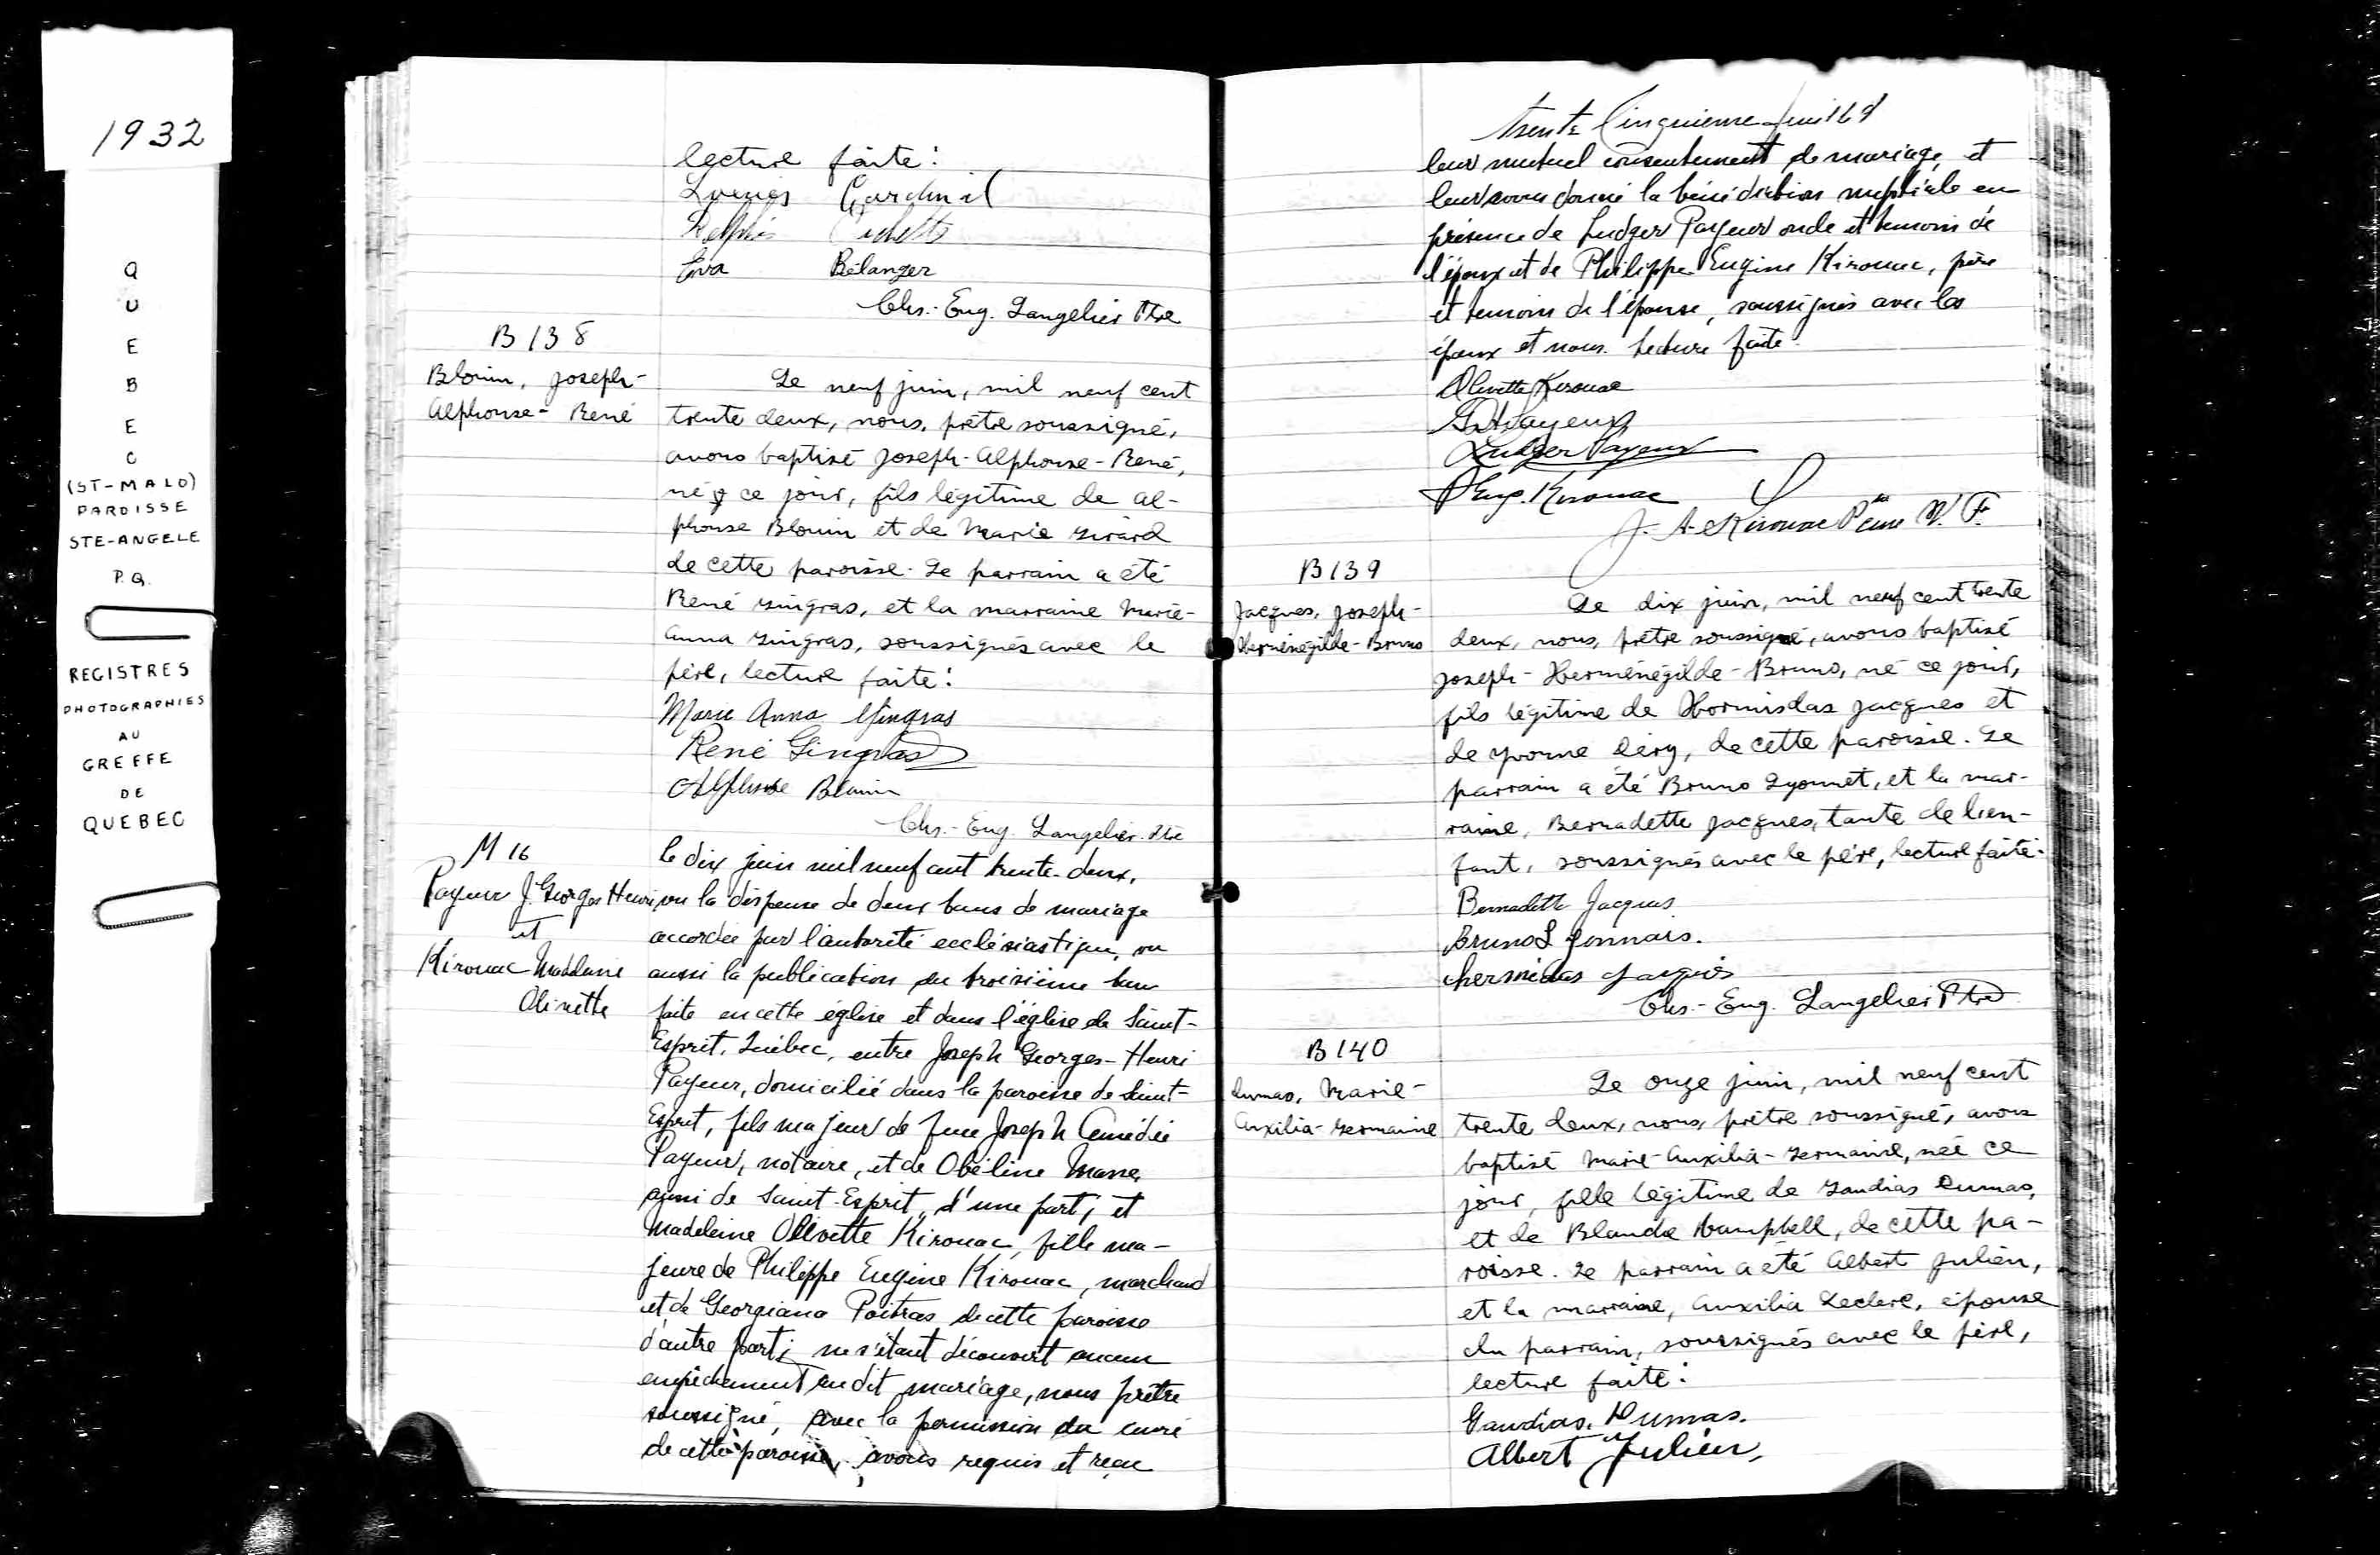 1932
Q
U
E
B
E
C
(ST-MALO)
PAROISSE
STE-ANGELE
P.Q.
REGISTRES
PHOTOGRAPHIES
AU
GREFFE
DE
QUEBEC
lecture faite:
Cardinal
Eva Bélanger
Chs.-Eug. Langelier Ptre
B 138
Blouin, Joseph-
Alphonse-René
Le neuf juin, mil neuf cent
trente deux, nous, prêtre soussigné,
avons baptisé Joseph-Alphonse-René,
né ce jour, fils légitime de Al-
phonse Blouin et de Marie Girard
de cette paroisse. Le parrain a été
René Gingras, et la marraine Marie-
Anna Gingras, soussignés avec le
père, lecture faite:
Marie Anna Gingras
René Gingras
Alphonse Blouin
Chs.-Eug. Langelier. Ptre
M 16
Payeur J. Georges Henri
et
Kirouac Madeleine
Olivette
le dix juin mil neuf cent trente-deux,
vu la dispense de deux bans de mariage
accordée par l'autorité ecclésiastique, vu
aussi la publication du troisième ban
faite en cette église et dans l'église de Saint-
Esprit, Québec, entre Joseph Georges-Henri
Payeur, domicilié dans la paroisse de Saint-
Esprit, fils majeur de feu Joseph Amédée
Payeur, notaire, et de Obéline Masse,
aussi de Saint-Esprit, d'une part, et
Madeleine Olivette Kirouac, fille ma-
jeure de Philippe Eugène Kirouac, marchand
et de Georgiana Poitras de cette paroisse
d'autre part; ne s'étant découvert aucun
empêchement au dit mariage, nous prêtre
soussigné, avec la permission du curé
de cette paroisse, avons requis et reçu
trente cinquième feuillet
leur mutuel consentement de mariage, et
leur avons donné la bénédiction nuptiale en
présence de Ludger Payeur oncle et témoin de
l'époux et de Philippe-Eugène Kirouac, père
et témoin de l'épouse, soussignés avec les
époux et nous. Lecture faite.
Olivette Kirouac
Payeur
Ludger Payeur
P Eug. Kirouac
J. A. Kirouac Ptre V. F.
B 139
Jacques, Joseph-
Herménégilde-Bruno
Le dix juin, mil neuf cent trente
deux, nous, prêtre soussigné, avons baptisé
Joseph-Herménégilde-Bruno, né ce jour,
fils légitime de Hormisdas Jacques et
de Yvonne Déry, de cette paroisse. Le
parrain a été Bruno Lyonnet, et la mar-
raine, Bernadette Jacques, tante de l'en-
fant, soussignés avec le père, lecture faite.
Bernadette Jacques
Bruno Lyonnais.
hermidas Jacques
Chs.-Eug. Langelier Ptre
B 140
Dumas, Marie-
Auxilia-Germaine
Le onze juin, mil neuf cent
trente deux, nous, prêtre soussigné, avons
baptisé Marie-Auxilia-Germaine, née ce
jour, fille légitime de Gaudias Dumas,
et de Blanche Campbell, de cette pa-
roisse. Le parrain a été Albert Julien,
et la marraine, Auxilia Leclerc, épouse
du parrain, soussignés avec le père,
lecture faite:
Gaudias. Dumas.
Albert Julien,